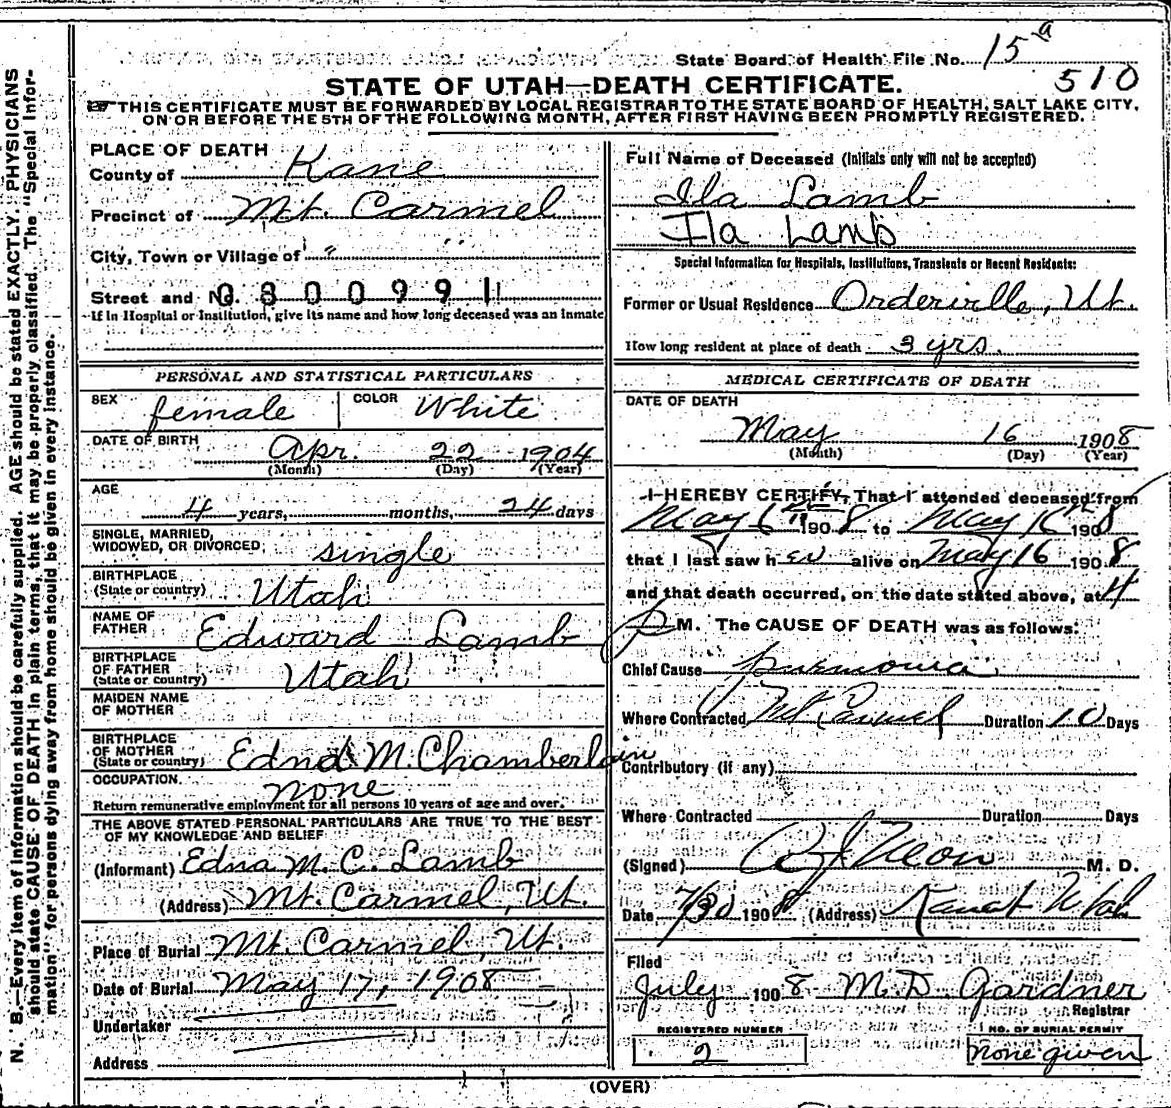 N. B.—Every item of information should be carefully supplied. AGE should be stated EXACTLY. PHYSICIANS
should state CAUSE OF DEATH in plain terms, that it may be properly classified. The "Special Infor-
mation" for persons dying away from home should be given in every instance.
State Board of Health File No. 15 a
510
STATE OF UTAH—DEATH CERTIFICATE.
THIS CERTIFICATE MUST BE FORWARDED BY LOCAL REGISTRAR TO THE STATE BOARD OF HEALTH, SALT LAKE CITY,
ON OR BEFORE THE 5TH OF THE FOLLOWING MONTH, AFTER FIRST HAVING BEEN PROMPTLY REGISTERED.
PLACE OF DEATH
County of Kane
Precinct of Mt. Carmel
City, Town or Village of "
Street and No. 0800991
If in Hospital or Institution, give its name and how long deceased was an inmate
PERSONAL AND STATISTICAL PARTICULARS
SEX female COLOR White
DATE OF BIRTH Apr. 22 1904
(Month) (Day) (Year)
AGE
4 years, months, 24 days
SINGLE, MARRIED,
WIDOWED, OR DIVORCED; single
BIRTHPLACE
(State or country) Utah
NAME OF
FATHER Edward Lamb
BIRTHPLACE
OF FATHER
(State or country) Utah
MAIDEN NAME
OF MOTHER
BIRTHPLACE
OF MOTHER
(State or country) Edna M. Chamberlain
OCCUPATION. none
Return remunerative employment for all persons 10 years of age and over.
THE ABOVE STATED PERSONAL PARTICULARS ARE TRUE TO THE BEST
OF MY KNOWLEDGE AND BELIEF
(Informant) Edna M. C. Lamb
(Address) Mt. Carmel, Ut.
Place of Burial Mt. Carmel, Ut.
Date of Burial May 17, 1908
Undertaker
Address
Full Name of Deceased (Initials only will not be accepted)
Ila Lamb
Ila Lamb
Special Information for Hospitals, Institutions, Transients or Recent Residents:
Former or Usual Residence Orderville, Ut.
How long resident at place of death 3 yrs.
MEDICAL CERTIFICATE OF DEATH
DATE OF DEATH
May 16 1908
(Month) (Day) (Year)
I HEREBY CERTIFY, That I attended deceased from
May 6 1908 to May 16 1908
that I last saw her alive on May 16 1908
and that death occurred, on the date stated above, at 4
P M. The CAUSE OF DEATH was as follows:
Chief Cause pnumonia
Where Contracted Mt Carmel Duration 10 Days
Contributory (if any)
Where Contracted Duration Days
(Signed) M. D.
Date 7/30 1908 (Address) Kanab Utah
Filed
July 1908 M. D. Gardner
Registrar
REGISTERED NUMBER
2
NO. OF BURIAL PERMIT
none given
(OVER)